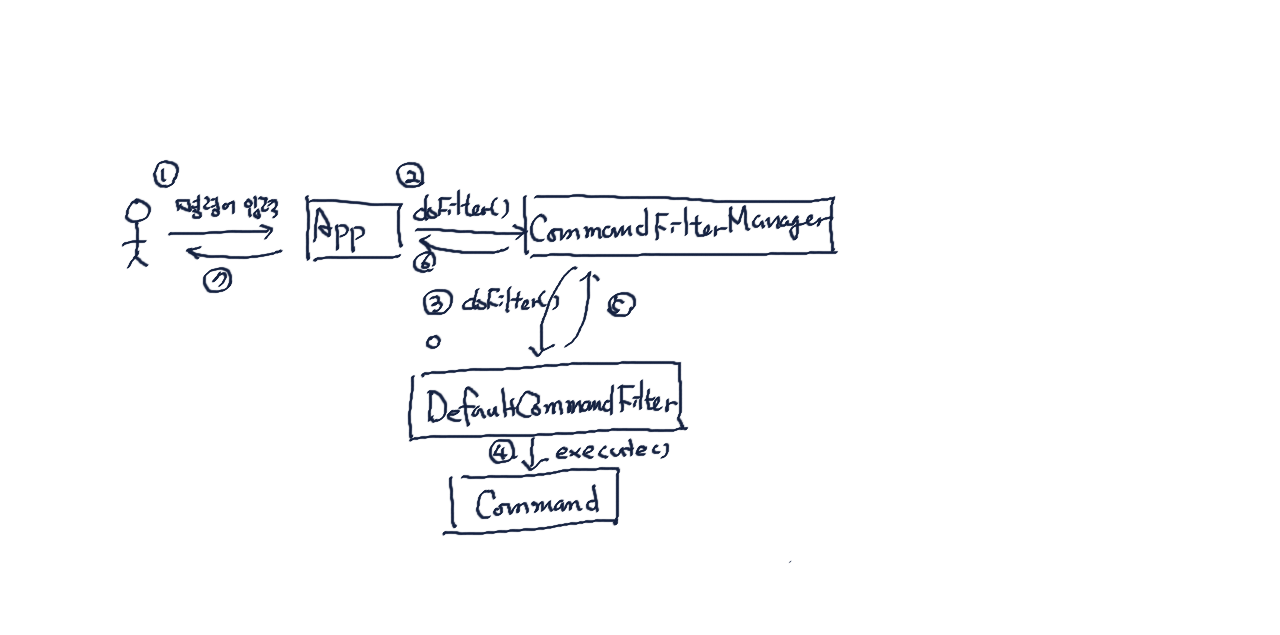 ①
명령어 입력
⑦
App
②
doFilter()
⑥
CommandFilterManager
③ doFilter()
⑤
DefaultCommandFilter
④ execute()
Command